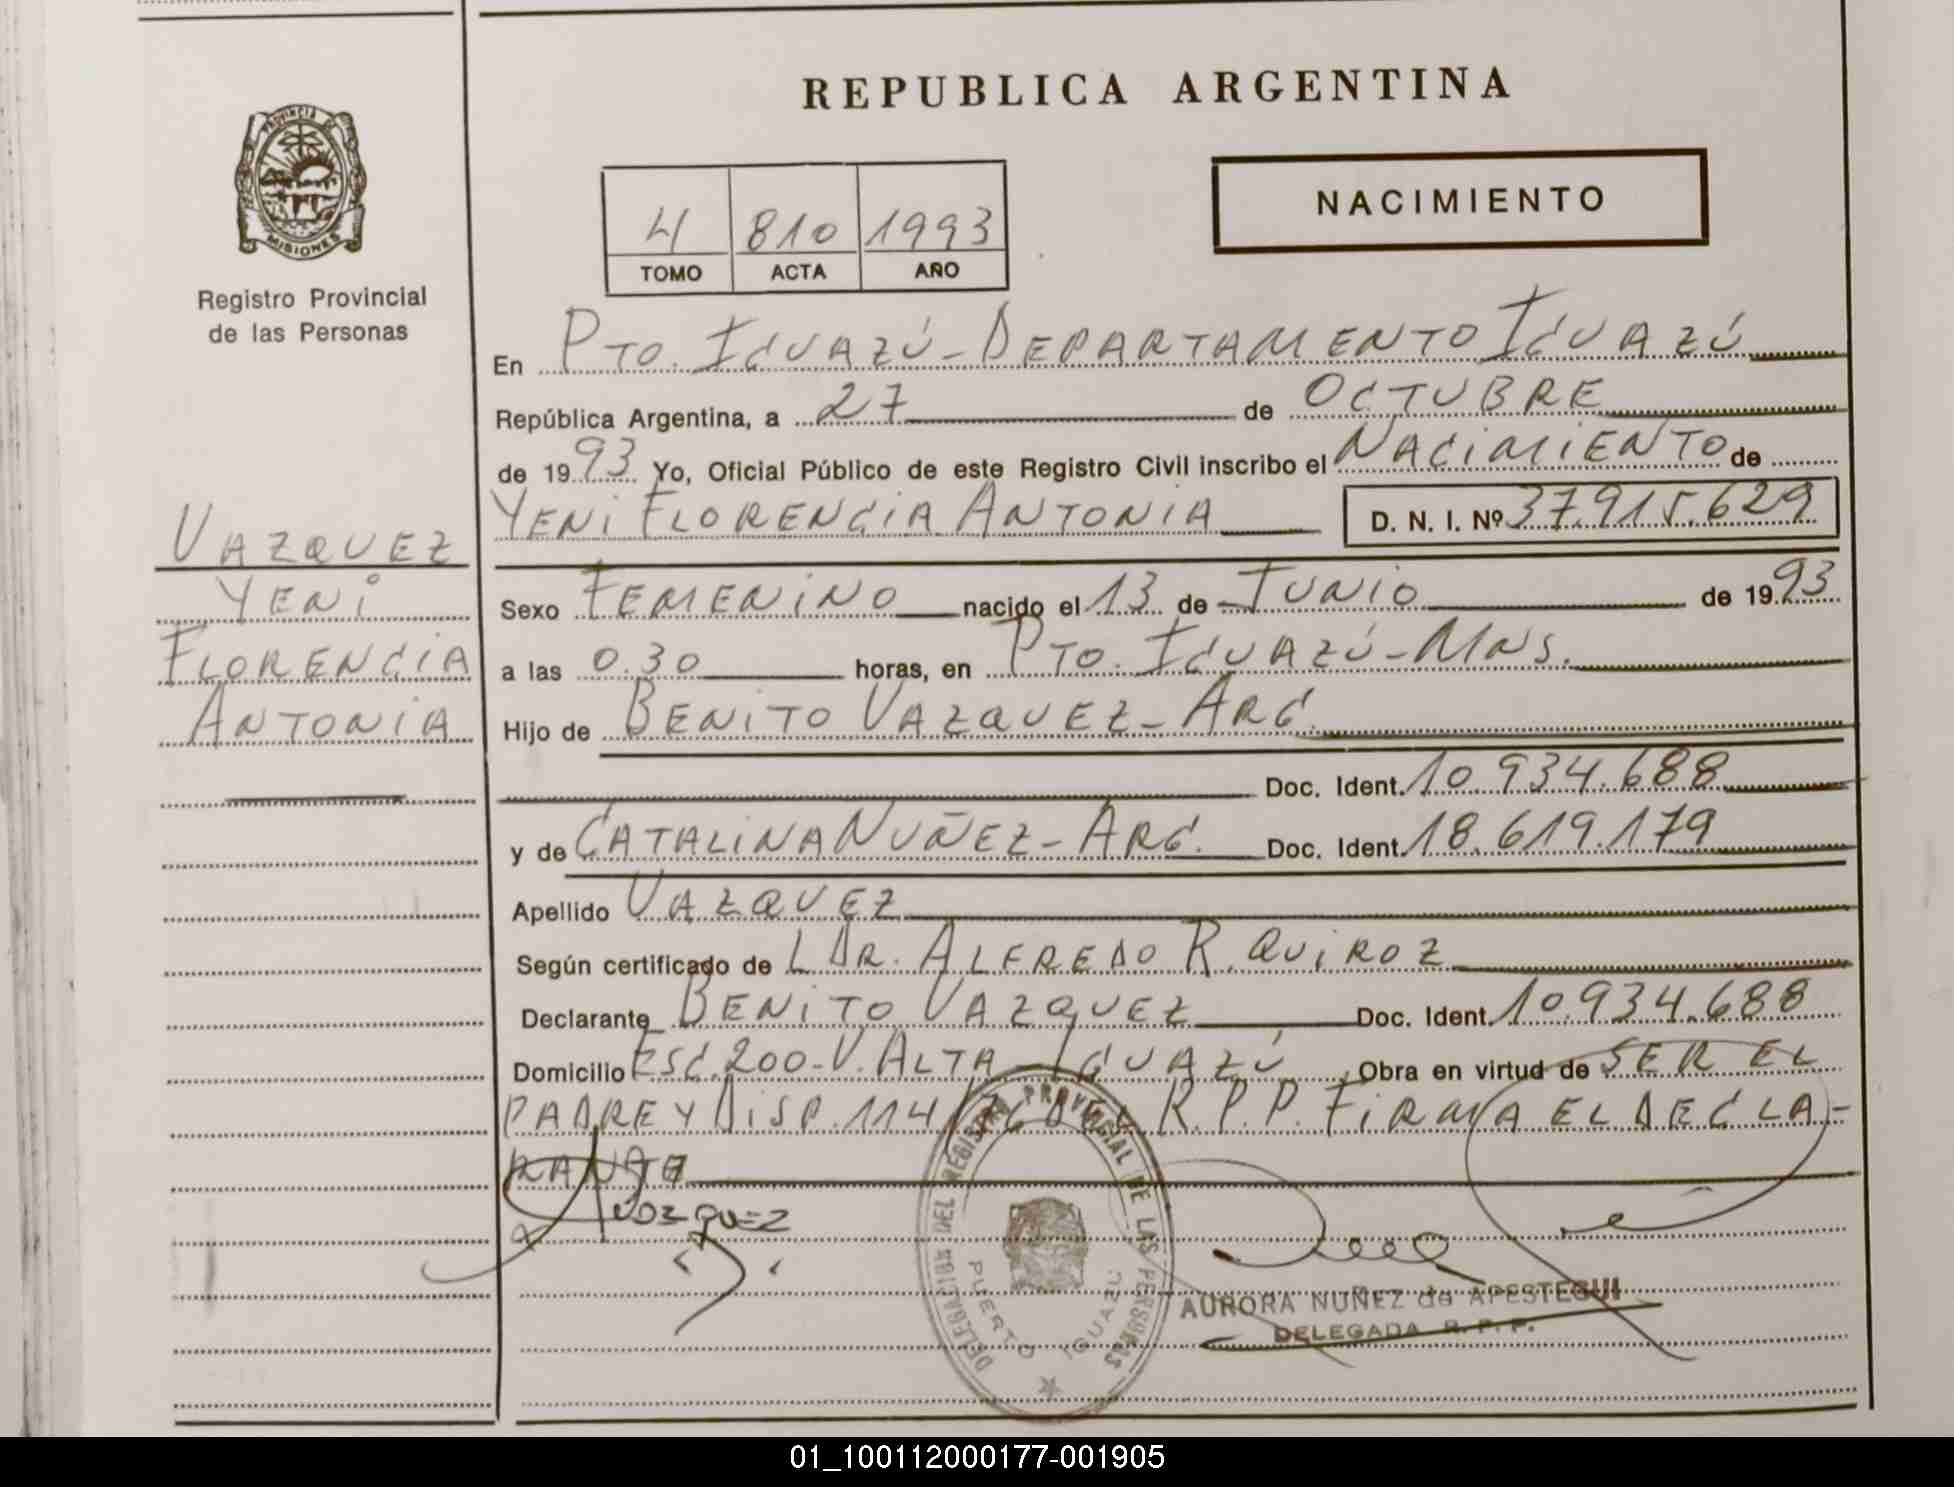 REPUBLICA ARGENTINA
PROVINCIA DE
MISIONES
Registro Provincial
de las Personas
4 810 1993
TOMO ACTA AÑO
NACIMIENTO
En PTO. IGUAZÚ - DEPARTAMENTO IGUAZÚ
República Argentina, a 27 de OCTUBRE
de 1993 Yo, Oficial Público de este Registro Civil inscribo el NACIMIENTO de
YENI FLORENCIA ANTONIA D. N. I. Nº 37.915.629
VAZQUEZ
YENI
FLORENCIA
ANTONIA
Sexo FEMENINO nacido el 13 de JUNIO de 1993
a las 0.30 horas, en PTO. IGUAZÚ - MNS.
Hijo de BENITO VAZQUEZ - ARG.
Doc. Ident. 10.934.688
y de CATALINA NUÑEZ - ARG. Doc. Ident. 18.619.179
Apellido VAZQUEZ
Según certificado de L DR. ALFREDO R. QUIROZ
Declarante BENITO VAZQUEZ Doc. Ident. 10.934.688
Domicilio ESC. 200 - V. ALTA - IGUAZÚ Obra en virtud de SER EL
PADRE Y DISP. 114 R.P.P. FIRMA EL DECLA-
RANTE
VAZQUEZ
DELEGACION DEL REGISTRO PROVINCIAL DE LAS PERSONAS
PUERTO IGUAZU
AURORA NUÑEZ de APESTEGUI
DELEGADA R. P. P.
01_100112000177-001905